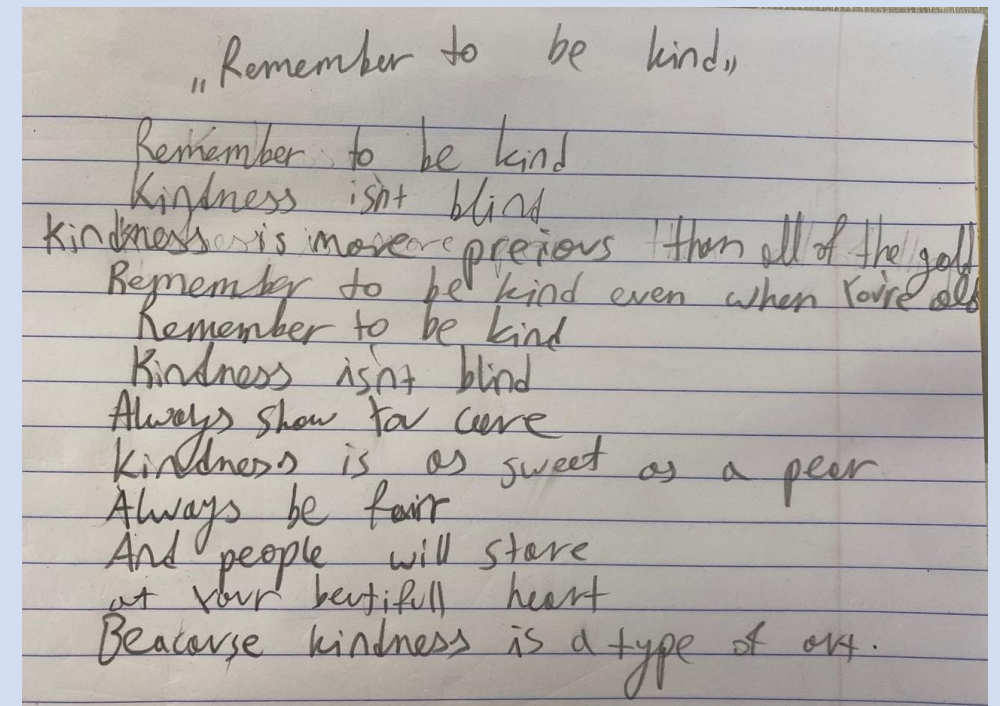 „Remember to be kind„
Remember to be kind
Kindness isn't blind
kindness is more precious than all of the gold
Remember to be kind even when You're old
Remember to be kind
Kindness isn't blind
Always show You care
Kindness is as sweet as a pear
Always be fair
And people will stare
at Your beutifull heart
Beacause kindness is a type of art.